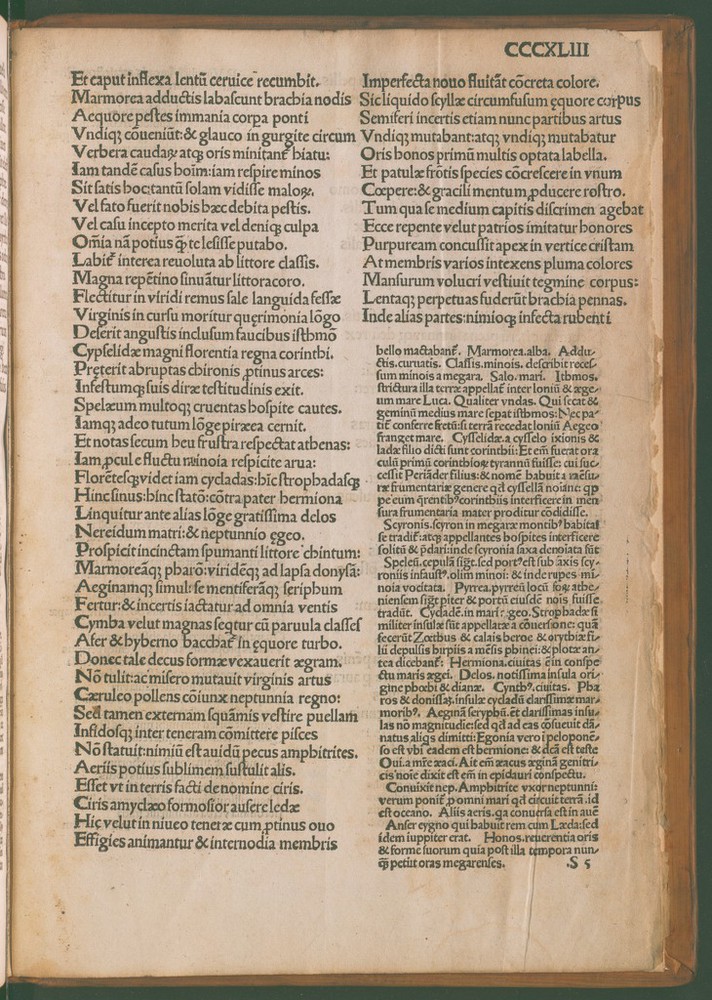 CCCXLIII
Et caput inflexa lentũ ceruice recumbit.
Marmorea adductis labascunt brachia nodis
Aequore pestes immania corpa ponti
Vndiqꝫ cõueniũt:& glauco in gurgite circum
Verbera caudaꝝ atqꝫ oris minitant̃ hiatu:
Iam tandẽ casus hoĩm:iam respire minos
Sit satis hoc:tantũ solam vidisse maloꝝ.
Vel fato fuerit nobis hæc debita pestis.
Vel casu incepto merita vel deniqꝫ culpa
Om̃ia nã potius q̃ te lesisse putabo.
Labit̃ interea reuoluta ab littore classis.
Magna repẽtino sinuãtur littoracoro.
Flectitur in viridi remus sale languida fessæ
Virginis in cursu moritur querimonia lõgo
Deserit angustis inclusum faucibus isthmõ
Cypselidæ magni florentia regna corinthi.
Preterit abruptas chironis ꝓtinus arces:
Infestumqꝫ suis diræ testitudinis exit.
Spelæum multoqꝫ cruentas hospite cautes.
Iamqꝫ adeo tutum lõge piræea cernit.
Et notas secum heu frustra respectat athenas:
Iam ꝓcul e fluctu minoia respicite arua:
Florẽtesqꝫ videt iam cycladas:hic strophadasqꝫ
Hinc sinus:hinc statõ:cõtra pater hermiona
Linquitur ante alias lõge gratissima delos
Nereidum matri:& neptunnio ęgeo.
Prospicit incinctam spumanti littore chintum:
Marmoreãqꝫ pharõ:viridẽqꝫ ad lapsa donysã:
Aeginamqꝫ simul:se mentiferãqꝫ seriphum
Fertur:& incertis iactatur ad omnia ventis
Cymba velut magnas seqtur cũ paruula classes
Afer & hyberno bacchat̃ in ęquore turbo.
Donec tale decus formæ vexauerit ægram.
Nõ tulit:ac misero mutauit virginis artus
Cæruleo pollens cõiunx neptunnia regno:
Sed tamen externam squãmis vestire puellam
Infidosqꝫ inter teneram cõmittere pisces
Nõ statuit:nimiũ est auidũ pecus amphitrites.
Aeriis potius sublimem sustulit alis.
Esset vt in terris facti de nomine ciris.
Ciris amyclæo formosior ansere ledæ
Hic velut in niueo teneræ cum ꝓtinus ouo
Effigies animantur & internodia membris
Imperfecta nouo fluitãt cõcreta colore.
Sic liquido scyllæ circumfusum ęquore corpus
Semiferi incertis etiam nunc partibus artus
Vndiqꝫ mutabant:atqꝫ vndiqꝫ mutabatur
Oris honos primũ multis optata labella.
Et patulæ frõtis species cõcrescere in vnum
Cœpere:& gracili mentum ꝓducere rostro.
Tum qua se medium capitis discrimen agebat
Ecce repente velut patrios imitatur honores
Purpuream concussit apex in vertice cristam
At membris varios intexens pluma colores
Mansurum volucri vestiuit tegmine corpus:
Lentaqꝫ perpetuas fuderũt brachia pennas.
Inde alias partes:nimioqꝫ infecta rubenti
bello mactabant̃. Marmorea.alba. Addu-
ctis.curuatis. Classis.minois. describit reces-
sum minois a megara. Salo.mari. Ithmos.
strictura illa terræ appellat̃ inter Ioniũ & æge-
um mare Luca. Qualiter vndas. Qui secat &
geminũ medius mare sepat isthmos:Nec pa-
tit̃ conferre fretũ:si terrã recedat Ioniũ Aegeo
franget mare. Cysselidæ.a cysselo ixionis &
ladæ filio dicti sunt corinthii:Et em̃ fuerat ora
culũ primũ corinthioꝝ tyrannũ fuisse: cui suc-
cessit Periãder filius:& nomẽ habuit a mẽsu-
ræ frumentariæ genere qđ cyssellã noiant: qꝓ
pe eum q̃rentibꝰ corinthiis interficere in men
sura frumentaria mater proditur cõdidisse.
Scyronis.scyron in megaræ montibꝰ habitas
se tradit̃:atqꝫ appellantes hospites interficere
solitũ & p̃dari:inde scyronia saxa denoiata sũt
Speleũ.cepulã sigt.sed portꝰ est sub axis scy-
roniis infaustꝰ.olim minoi: & inde rupes mi-
noia vocitata. Pyrrea.pyrreũ locũ foꝝ athe-
niensem sigt piter & portũ eiusdẽ nois fuisse
tradũt. Cycladẽ.in mari ægeo.Strophadæ si
militer insulæ sũt appellatæ a cõuersione: quã
fecerũt Zœthus & calais heroe & orythiæ fi-
lii depulsis hirpiis a mẽsis phinei:& plotæ an-
tea dicebant̃: Hermiona.ciuitas ẽ in conspe
ctu maris ægei. Delos. notissima insula ori-
gine phœbi & dianæ. Cynthꝰ.ciuitas. Pha
ros & donissaꝫ.insulæ cycladũ clarissimæ mar-
moribꝰ. Aeginã seryphũ. ẽt darissimas insu-
las nõ magnitudie:sed qđ ad eas cõsueuit dã-
natus aliqs dimitti:Egonia vero ĩ peloponẽ-
so est vbi eadem est hermione: & dcã est teste
Oui.a mr̃e æaci.Ait em̃ æacus æginã genitri-
cis noie dixit est em̃ in epidauri conspectu.
Conuixit nep. Amphitrite vxor neptunni:
verum ponit̃ ꝓ omni mari qđ circuit terrã.id
est oceano. Aliis aeris.qa conuersa est in auẽ
Anser cygno qui habuit rem cum Læda:sed
idem iuppiter erat. Honos.reuerentia oris
& forme suorum quia post illa tempora nun-
q̃ petiit oras megarenses. .S 5